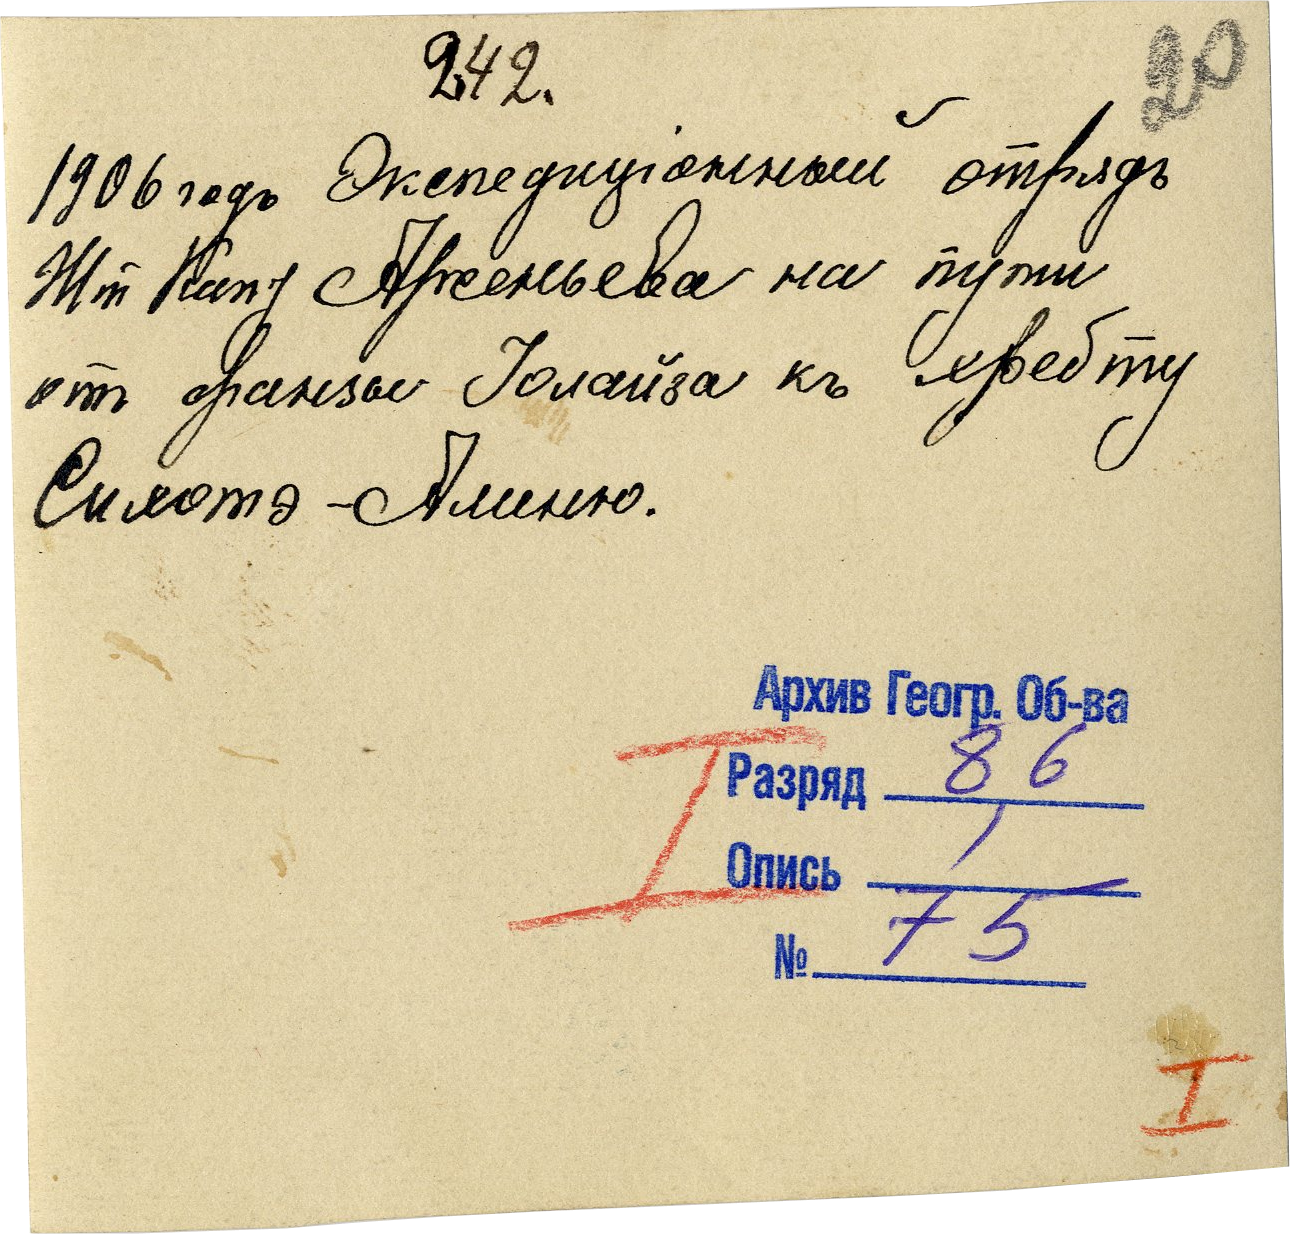 242.
20
1906 годъ Экспедиціонный отрядъ
Шт Кап Арсеньева на пути
отъ фанзы Іолайза къ хребту
Сихотэ-Алиню.
Архив Геогр. Об-ва
I
Разряд 86
Опись 1
№ 75
I